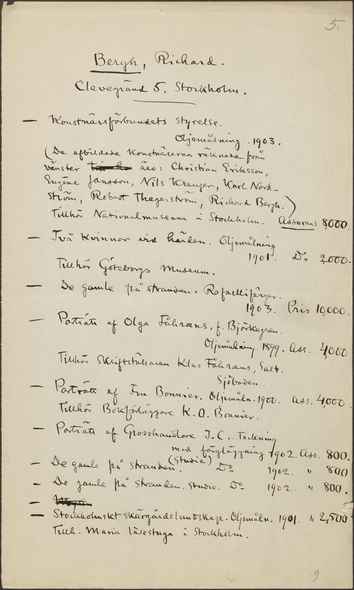 5.
Bergh, Richard.
Clevegränd 5. Stockholm.
— Konstnärsförbundets styrelse.
Oljemålning. 1903.
(De afbildade Konstnärerna räknade från
vänster äro: Christian Eriksson,
Eugène Jansson, Nils Kreuger, Karl Nord-
ström, Robert Thegerström, Richard Bergh.)
Tillhör Nationalmuseum i Stockholm. Assurans 8000
— Två kvinnor vid härden. Oljemålning
1901. Do 2000.
Tillhör Göteborgs Museum.
— De gamle på stranden. Rafaellifärger.
1903. Pris 10,000.
— Porträtt af Olga Fåhraeus, f. Björkegren.
Oljemålning 1899. Ass. 4000
Tillhör Skriftställaren Klas Fåhraeus, Salt-
Sjöbaden
— Porträtt af Fru Bonnier. Oljemåln. 1900. Ass. 4,000.
Tillhör Bokförläggare K. O. Bonnier.
— Porträtt af Grosshandlare J. C. Teckning
med färgläggning 1902. Ass. 800.
— De gamle på stranden. (Studie) Do 1902. " 800
— De gamle på stranden. Studie. Do 1902. " 800.
— Stockholmskt skärgårdslandskap. Oljemåln. 1901. " 2,500
Tillh. Maria läsestuga i Stockholm.
9